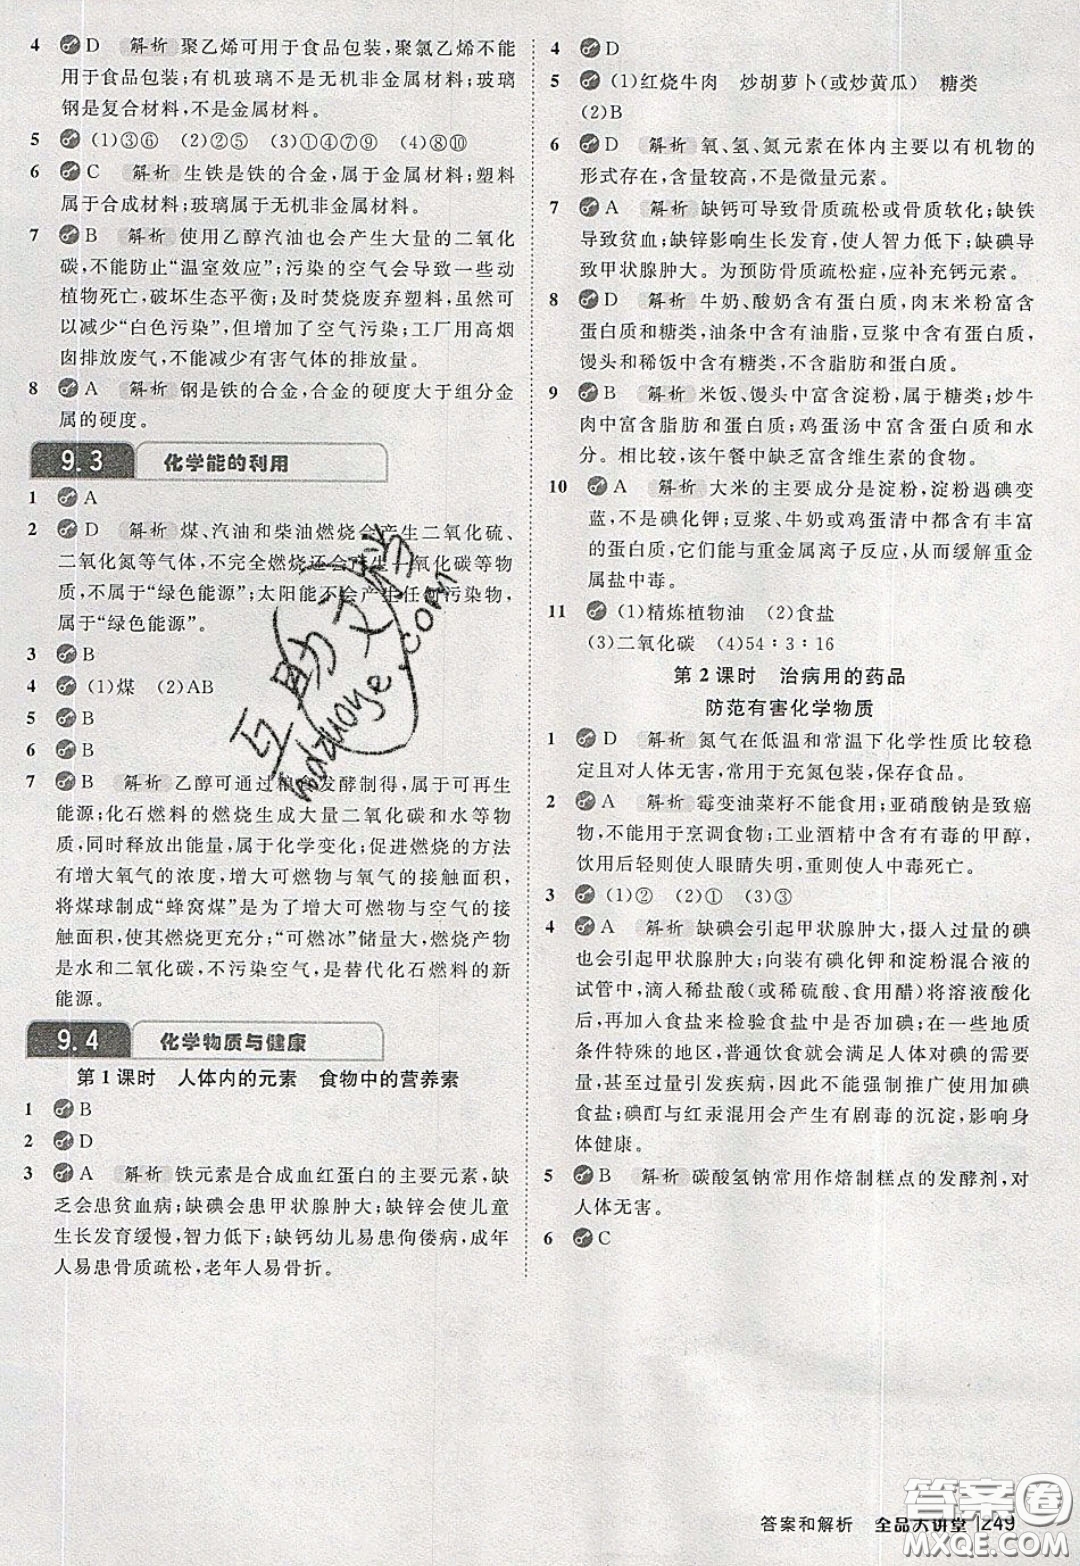 4 D 解析 聚乙烯可用于食品包装,聚氯乙烯不能
用于食品包装;有机玻璃不是无机非金属材料;玻璃
钢是复合材料,不是金属材料。
5 (1)③⑥ (2)②⑤ (3)①④⑦⑨ (4)⑧⑩
6 C 解析 生铁是铁的合金,属于金属材料;塑料
属于合成材料;玻璃属于无机非金属材料。
7 B 解析 使用乙醇汽油也会产生大量的二氧化
碳,不能防止“温室效应”;污染的空气会导致一些动
植物死亡,破坏生态平衡;及时焚烧废弃塑料,虽然可
以减少“白色污染”,但增加了空气污染;工厂用高烟
囱排放废气,不能减少有害气体的排放量。
8 A 解析 钢是铁的合金,合金的硬度大于组分金
属的硬度。
9.3 化学能的利用
1 A
2 D 解析 煤、汽油和柴油燃烧会产生二氧化硫、
二氧化氮等气体,不完全燃烧还会产生一氧化碳等物
质,不属于“绿色能源”;太阳能不会产生任何污染物,
属于“绿色能源”。
3 B
4 (1)煤 (2)AB
5 B
6 B
7 B 解析 乙醇可通过粮食发酵制得,属于可再生
能源;化石燃料的燃烧生成大量二氧化碳和水等物
质,同时释放出能量,属于化学变化;促进燃烧的方法
有增大氧气的浓度,增大可燃物与氧气的接触面积,
将煤球制成“蜂窝煤”是为了增大可燃物与空气的接
触面积,使其燃烧更充分;“可燃冰”储量大,燃烧产物
是水和二氧化碳,不污染空气,是替代化石燃料的新
能源。
9.4 化学物质与健康
第1课时 人体内的元素 食物中的营养素
1 B
2 D
3 A 解析 铁元素是合成血红蛋白的主要元素,缺
乏会患贫血病;缺碘会患甲状腺肿大;缺锌会使儿童
生长发育缓慢,智力低下;缺钙幼儿易患佝偻病,成年
人易患骨质疏松,老年人易骨折。
4 D
5 (1)红烧牛肉 炒胡萝卜(或炒黄瓜) 糖类
(2)B
6 D 解析 氧、氢、氮元素在体内主要以有机物的
形式存在,含量较高,不是微量元素。
7 A 解析 缺钙可导致骨质疏松或骨质软化;缺铁
导致贫血;缺锌影响生长发育,使人智力低下;缺碘导
致甲状腺肿大。为预防骨质疏松症,应补充钙元素。
8 D 解析 牛奶、酸奶含有蛋白质,肉末米粉富含
蛋白质和糖类;油条中含有油脂,豆浆中含有蛋白质;
馒头和稀饭中含有糖类,不含脂肪和蛋白质。
9 B 解析 米饭、馒头中富含淀粉,属于糖类;炒牛
肉中富含脂肪和蛋白质;鸡蛋汤中富含蛋白质和水
分。相比较,该午餐中缺乏富含维生素的食物。
10 A 解析 大米的主要成分是淀粉,淀粉遇碘变
蓝,不是碘化钾;豆浆、牛奶或鸡蛋清中含有丰富
的蛋白质,它们能与重金属离子反应,从而缓解重金
属盐中毒。
11 (1)精炼植物油 (2)食盐
(3)二氧化碳 (4)54∶3∶16
第2课时 治病用的药品
防范有害化学物质
1 D 解析 氮气在低温和常温下化学性质比较稳
定且对人体无害,常用于充氮包装,保存食品。
2 A 解析 霉变油菜籽不能食用;亚硝酸钠是致癌
物,不能用于烹调食物;工业酒精中含有有毒的甲醇,
饮用后轻则使人眼睛失明,重则使人中毒死亡。
3 (1)② (2)① (3)③
4 A 解析 缺碘会引起甲状腺肿大,摄入过量的碘
也会引起甲状腺肿大;向装有碘化钾和淀粉混合液的
试管中,滴入稀盐酸(或稀硫酸、食用醋)将溶液酸化
后,再加入食盐来检验食盐中是否加碘;在少数地质
条件特殊的地区,普通饮食就会满足人体对碘的需要
量,过量碘会引发疾病,因此不能强制推广使用加碘
食盐;碘酊与红汞混用会产生有剧毒的沉淀,影响身
体健康。
5 B 解析 碳酸氢钠常用作焙制糕点的发酵剂,对
人体无害。
6 C
互助文学
hdzuoye.com
答案和解析 全品大讲堂 249
答案圈
MXQE.COM